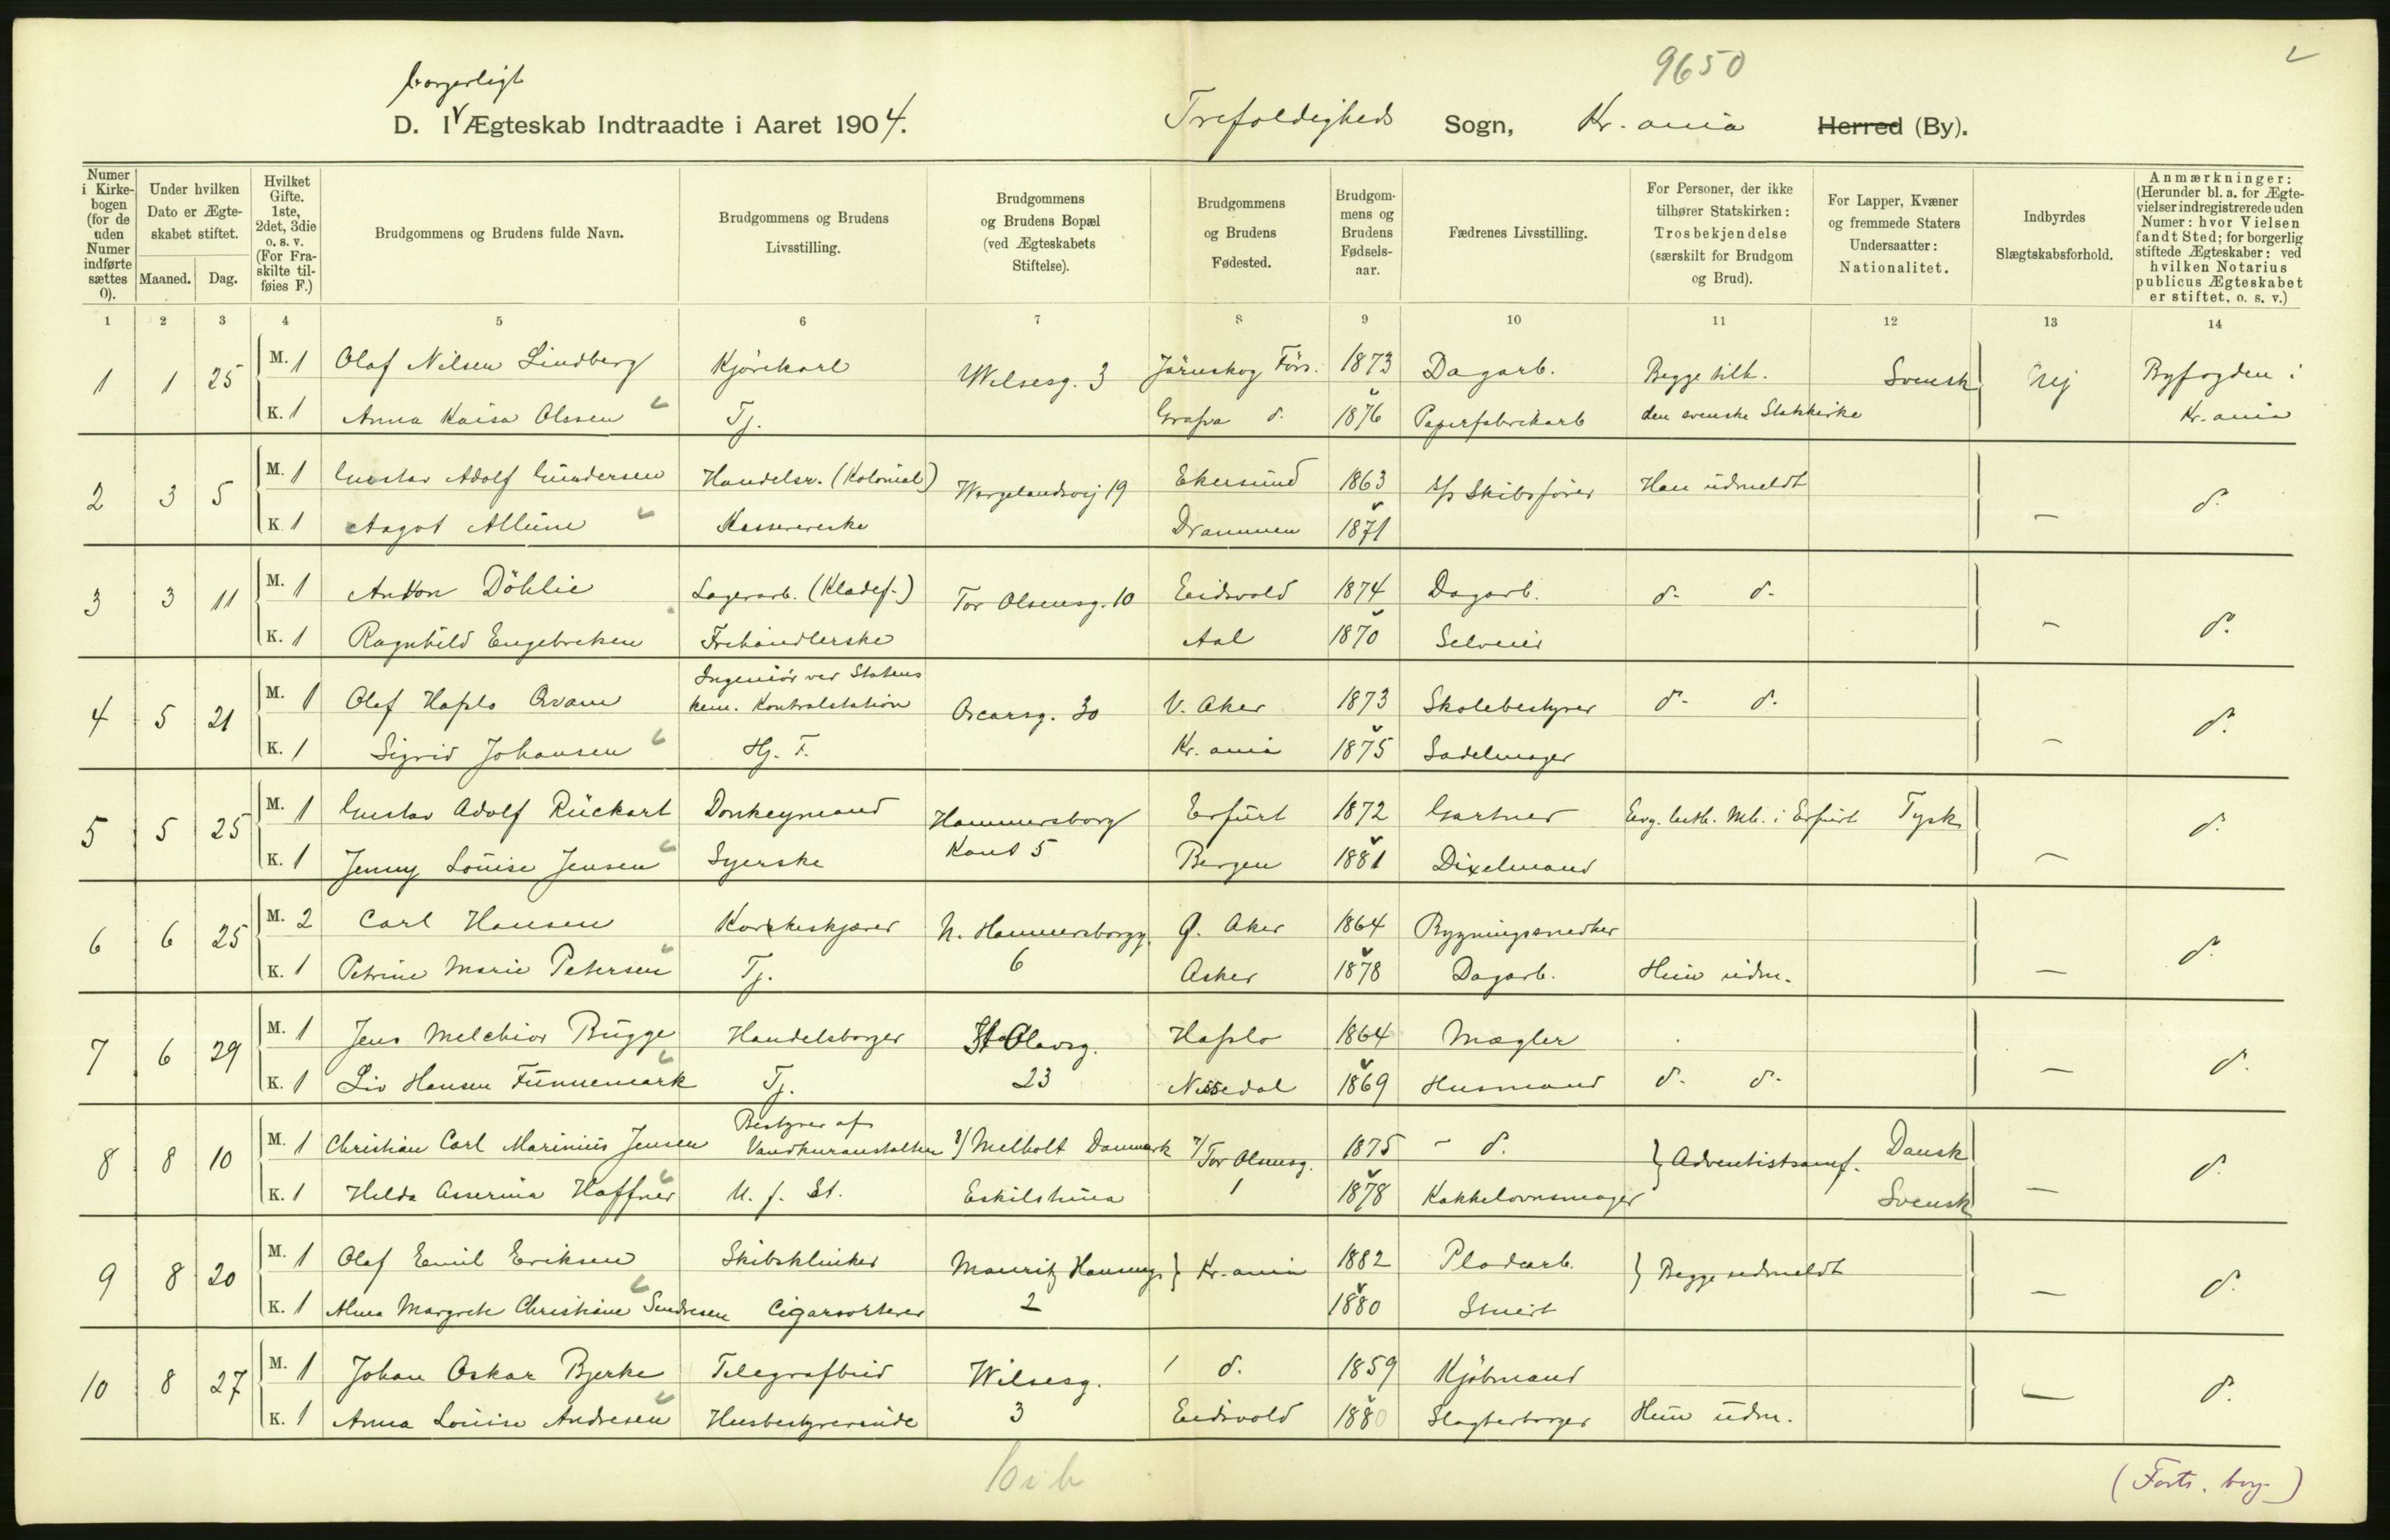 9650
borgerligt
D. I Ægteskab Indtraadte i Aaret 1904. Trefoldigheds Sogn, Kr.ania Herred (By).
Numer i Kirkebogen (for de uden Numer indførte sættes 0).
Under hvilken Dato er Ægteskabet stiftet.
Maaned. Dag.
Hvilket Gifte. 1ste, 2det, 3die o. s. v. (For Fraskilte tilføies F.)
Brudgommens og Brudens fulde Navn.
Brudgommens og Brudens Livsstilling.
Brudgommens og Brudens Bopæl (ved Ægteskabets Stiftelse).
Brudgommens og Brudens Fødested.
Brudgommens og Brudens Fødselsaar.
Fædrenes Livsstilling.
For Personer, der ikke tilhører Statskirken: Trosbekjendelse (særskilt for Brudgom og Brud).
For Lapper, Kvæner og fremmede Staters Undersaatter: Nationalitet.
Indbyrdes Slægtskabsforhold.
Anmærkninger: (Herunder bl. a. for Ægtevielser indregistrerede uden Numer: hvor Vielsen fandt Sted; for borgerlig stiftede Ægteskaber: ved hvilken Notarius publicus Ægteskabet er stiftet, o. s. v.)
1 2 3 4 5 6 7 8 9 10 11 12 13 14
1 1 25 M. 1 Olaf Nilsen Lindberg Kjörekarl Wilsesg. 3 Järnskog Förs. 1873 Dagarb. Begge tilh. Svensk Nej Byfogden i
K. 1 Anna Kaisa Olssen Tj. Grafva d. 1876 Papirfabrikarb den svenske Statskirke Kr.ania
2 3 5 M. 1 Gustav Adolf Gundersen Handelsr. (Kolonial) Wergelandsvej 19 Ekersund 1863 Skibsfører Han udmeldt d.
K. 1 Aagot Allum Kassererske Drammen 1871 —
3 3 11 M. 1 Anton Döhlie Lagerarb. (Kladef.) Tor Olsensg. 10 Eidsvold 1874 Dagarb. d. d.
K. 1 Ragnhild Engebretsen Frihandlerske Aal 1870 Selveier — d.
4 5 21 M. 1 Olaf Hasslo Qvam Ingeniør ved Statens
kem. Kontrolstation Oscarsg. 30 V. Aker 1873 Skolebestyrer d. d. d.
K. 1 Sigrid Johansen Hj. F. Kr.ania 1875 Sadelmager —
5 5 25 M. 1 Gustav Adolf Rückart Donkeymand Hammersborg Erfurt 1872 Gartner Evg. luth. Mh. i Erfurt Tysk d.
K. 1 Jenny Louise Jensen Syerske Kont 5 Bergen 1881 Dixelmand —
6 6 25 M. 2 Carl Hansen Korkeskjærer N. Hammersborgg. Ø. Aker 1864 Bygningssnedker d.
K. 1 Petrine Marie Petersen Tj. 6 Asker 1878 Dagarb. Hun udm. —
7 6 29 M. 1 Jens Melchior Bugge Handelsborger St Olavsg. Hasslo 1864 Mægler
K. 1 Liv Hansen Funnemark Tj. 23 Nissedal 1869 Husmand d. d. — d.
8 8 10 M. 1 Christian Carl Marinius Jensen Bestyrer af
Vandkuranstalten Melholt Danmark Tor Olsensg. 1875 - d. } Adventistsamf. Dansk d.
K. 1 Hilda Asserina Haffner U. f. St. Eskilstuna 1 1878 Kakkelovnsmager Svensk —
9 8 20 M. 1 Olaf Emil Eriksen Skibsklinker Mauritz Hansensg. } Kr.ania 1882 Pladearb. } Begge udmeldt d.
K. 1 Alma Margrete Christine Sendresen Cigarsorterer 2 1880 Stuert —
10 8 27 M. 1 Johan Oskar Bjerke Telegrafbud Wilsesg. d. 1859 Kjøbmand d.
K. 1 Anna Louise Andresen Husbestyrerinde 3 Eidsvold 1880 Slagterborger Hun udm. —
(Forts. borg.)